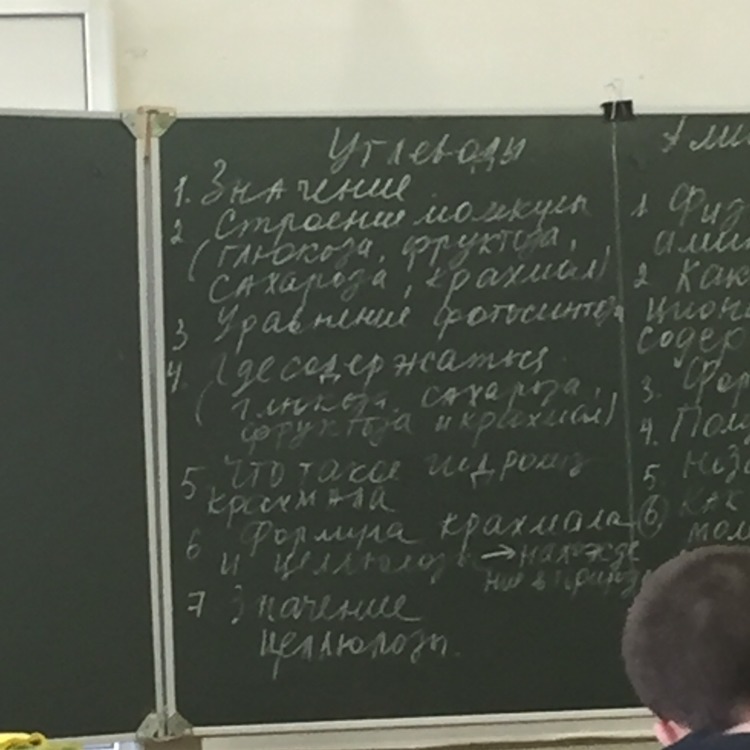 Углеводы
1. Значение
2 Строение молекулы
(глюкоза, фруктоза,
сахароза, крахмал)
3 Уравнение фотосинтеза
4. Где содержатся
(глюкоза, сахароза,
фруктоза и крахмал)
5 Что такое гидролиз
крахмала
6 Формула крахмала
и целлюлозы → нахожде
ние в природе
7 Значение
целлюлозы.
1
2 Как
3.
4.
5.
6